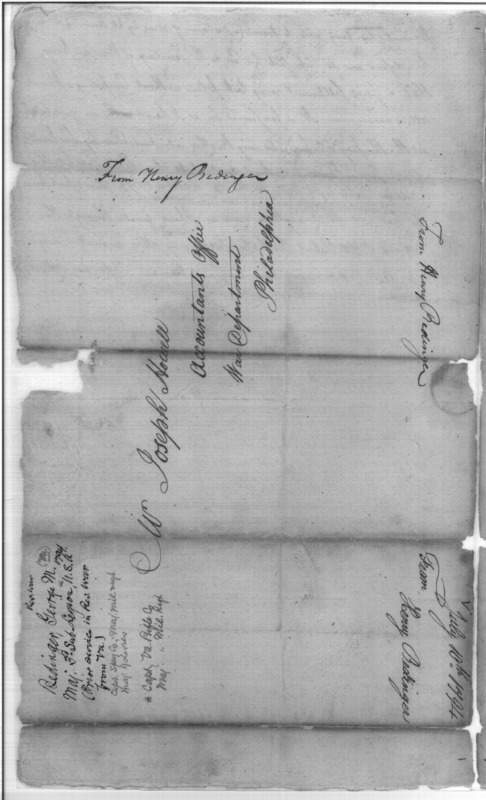 From Henry Bedinger
Mr Joseph Howell
Accountants Office
War Department
Philadelphia
From Henry Bedinger
July 10th 1794
From
Henry Bedinger
Rev War
Bedinger, George M.
Maj. Sub Legion, U.S.A.
(Prior service in Rev. War
from Va.)
Capt.
* Capt. Va Rifle Co
Maj.